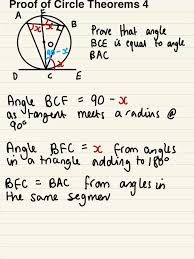 Proof of Circle Theorems 4
A
F
B
O
90-x
x
x
D
C
E
Prove that angle
BCE is equal to angle
BAC
Angle BCF = 90 - x
as tangent meets a radius @
90°
Angle BFC = x from angles
in a triangle adding to 180°
BFC = BAC from angles in
the same segment